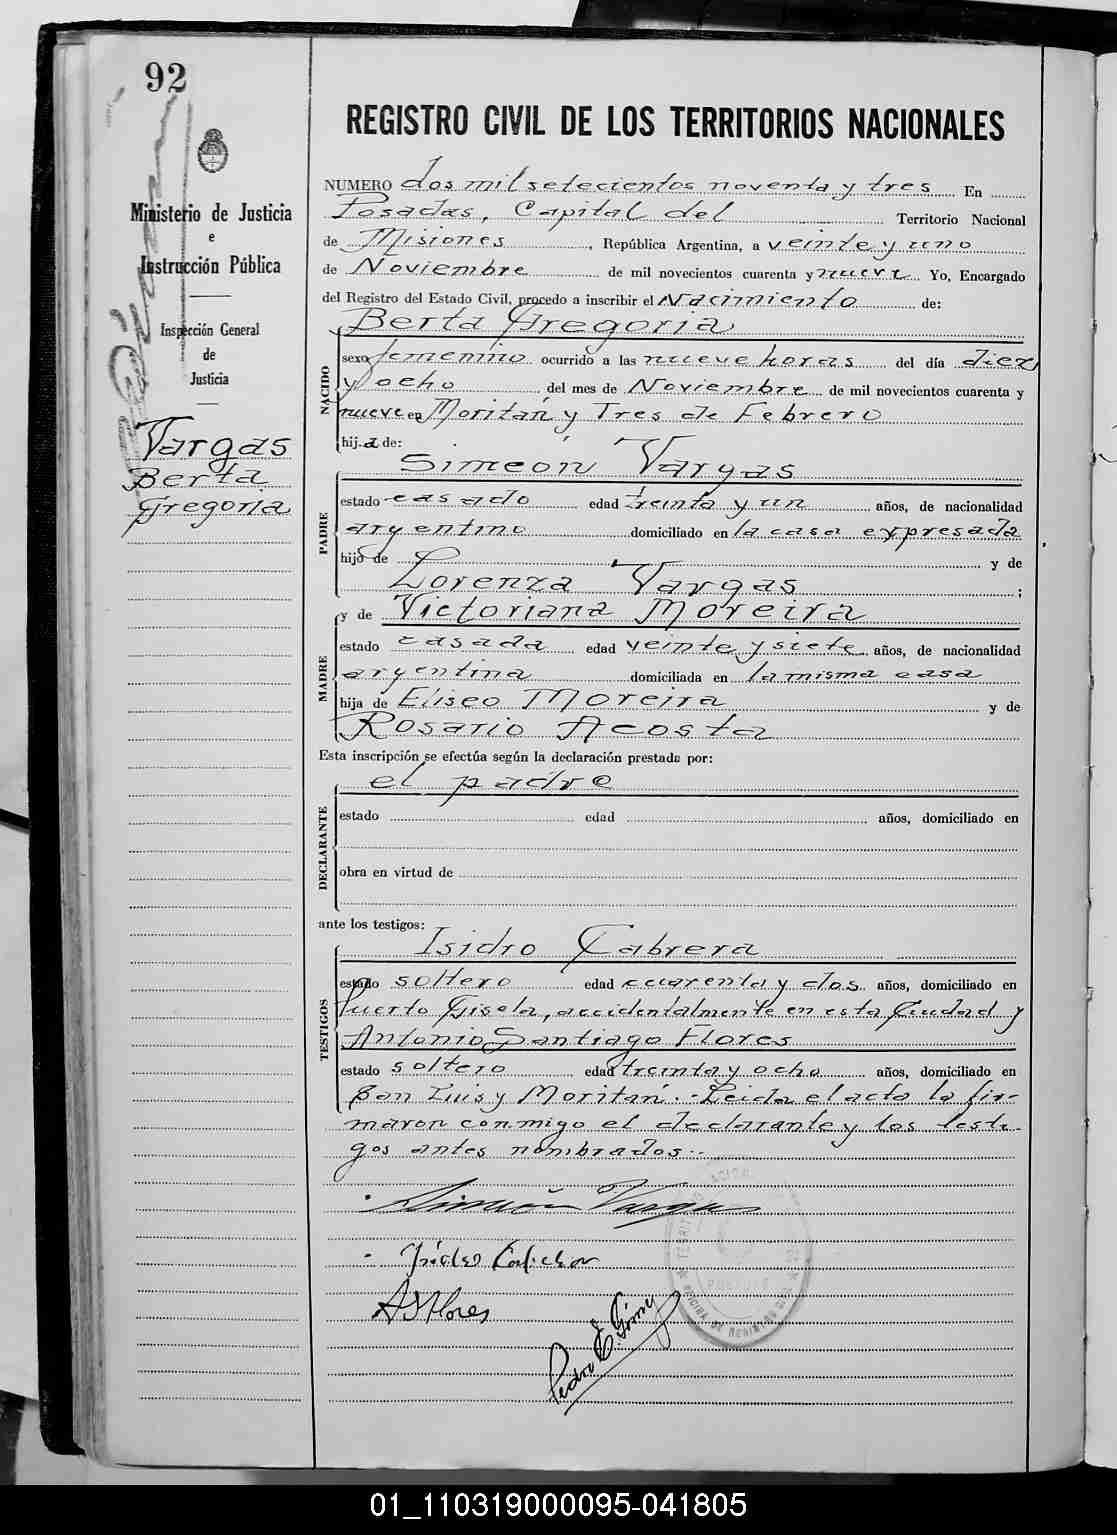 92
Ministerio de Justicia
e
Instrucción Pública
Inspección General
de
Justicia
Vargas
Berta
Gregoria
REGISTRO CIVIL DE LOS TERRITORIOS NACIONALES
NUMERO dos mil setecientos noventa y tres En
Posadas, Capital del Territorio Nacional
de Misiones, República Argentina, a veinte y uno
de Noviembre de mil novecientos cuarenta y nueve Yo, Encargado
del Registro del Estado Civil, procedo a inscribir el Nacimiento de:
Berta Gregoria
NACIDO
sexo femenino ocurrido a las nueve horas del día diez
y ocho del mes de Noviembre de mil novecientos cuarenta y
nueve en Moritán y Tres de Febrero
hija de:
Simeón Vargas
PADRE
estado casado edad treinta y un años, de nacionalidad
argentino domiciliado en la casa expresada
hijo de y de
Lorenza Vargas ;
y de Victoriana Moreira
MADRE
estado casada edad veinte y siete años, de nacionalidad
argentina domiciliada en la misma casa
hija de Eliseo Moreira y de
Rosario Acosta
Esta inscripción se efectúa según la declaración prestada por:
el padre
DECLARANTE
estado edad años, domiciliado en
obra en virtud de
ante los testigos:
Isidro Cabrera
TESTIGOS
estado soltero edad cuarenta y dos años, domiciliado en
Puerto Gisela, accidentalmente en esta Ciudad y
Antonio Santiago Flores
estado soltero edad treinta y ocho años, domiciliado en
San Luis y Moritán.- Leida el acta la fir-
maron conmigo el declarante y los testi-
gos antes nombrados.-
Simeón Vargas
A S Flores
Pedro E. Giméz
01_110319000095-041805